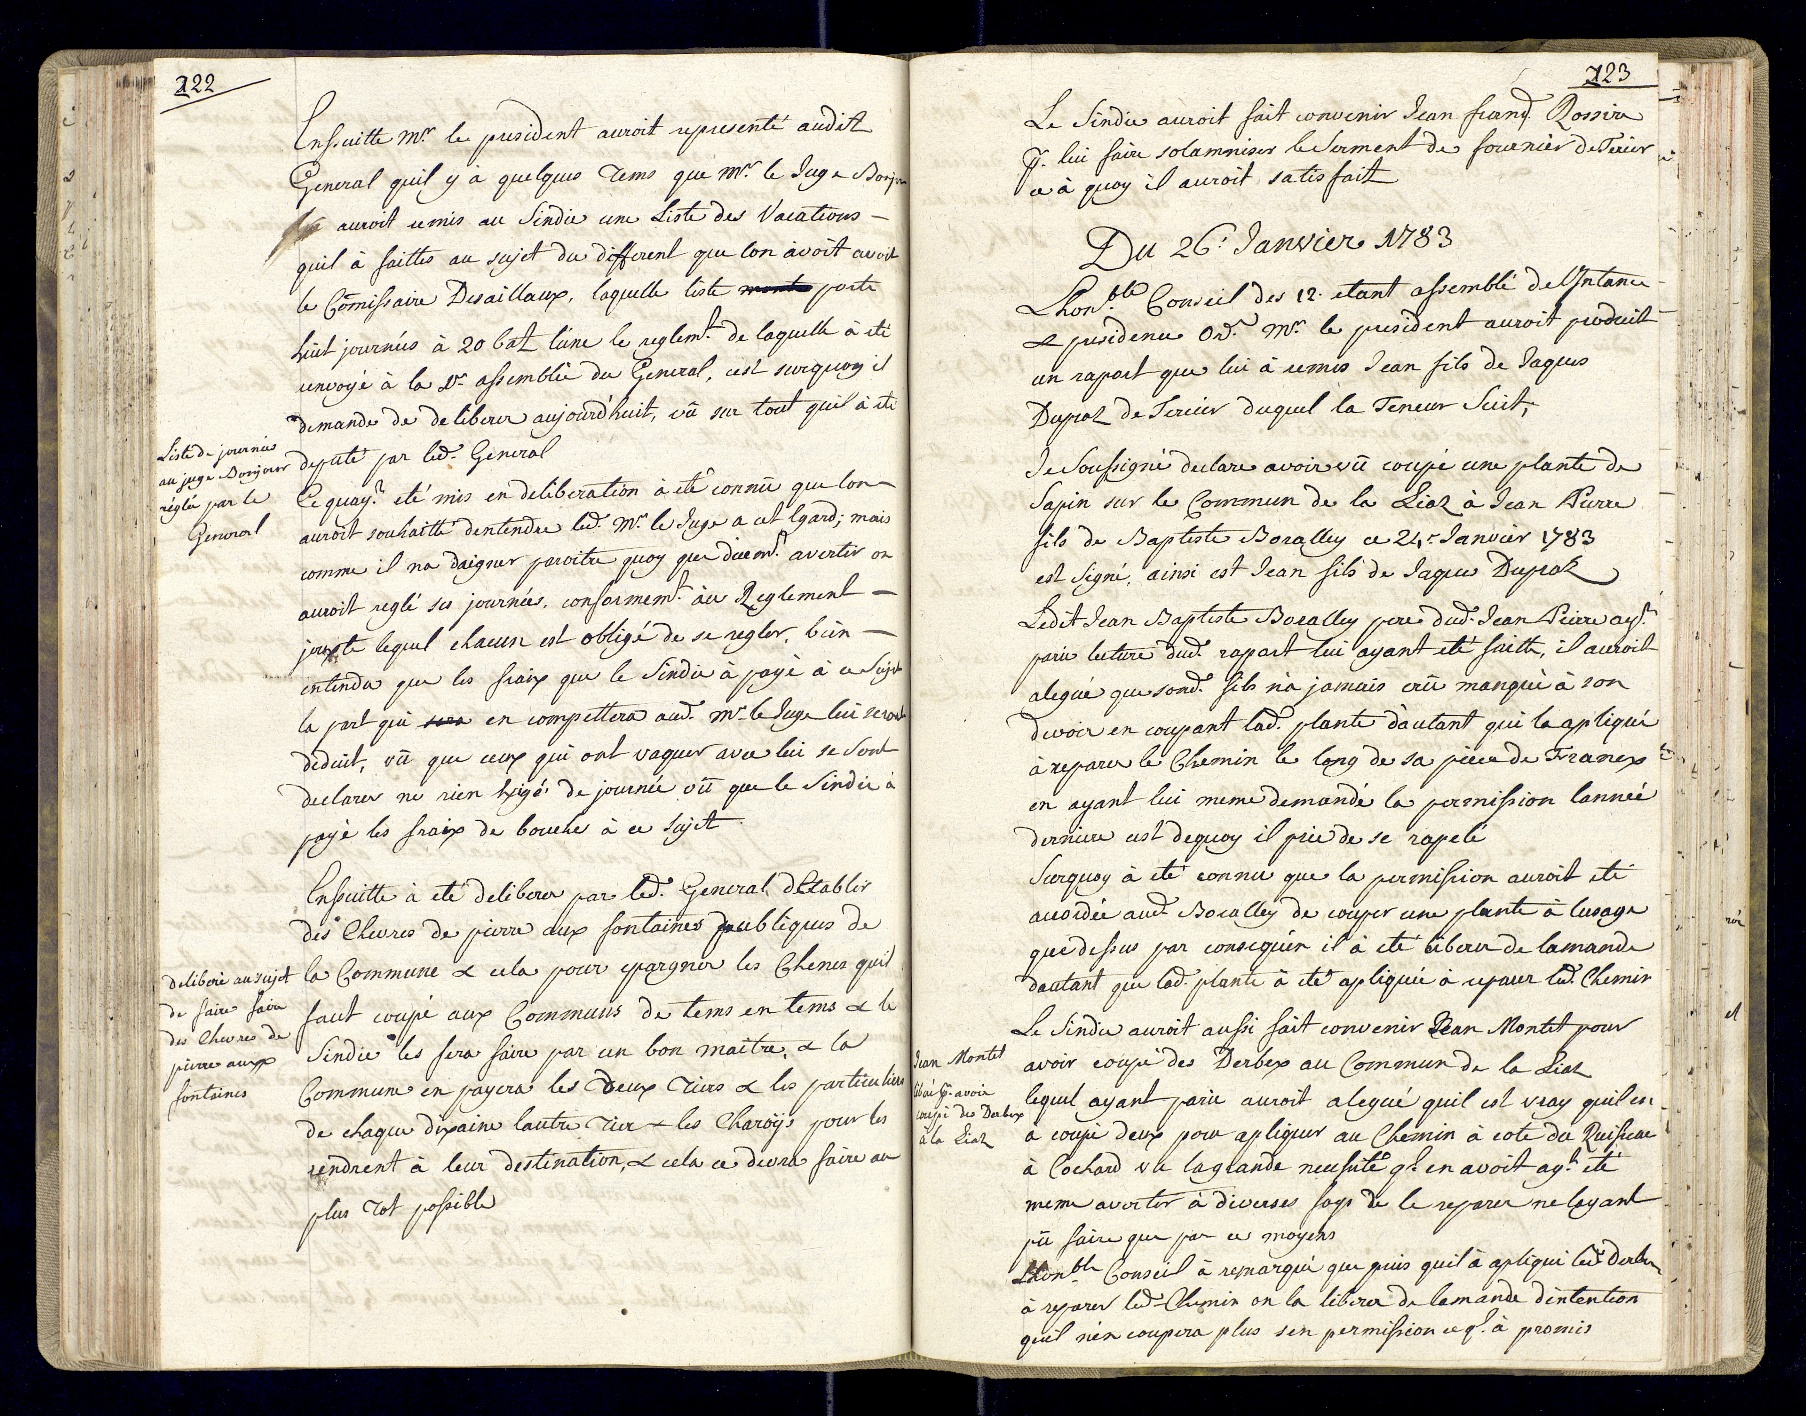 122
Ensuitte Mr. le president auroit representé audit
General quil y à quelques tems que Mr. le Juge Bonjour
auroit remis au Sindic une Liste des Vacations
quil à faittes au sujet du different que lon avoit avoit
le Comissaire Desaillaux, laquelle liste porte
huit journées à 20 batz lune le reglemt. de laquelle à eté
renvoyé à la Dr. assemblée du General, cest surquoy il
demande de deliberer aujourdhuit, vû sur tout quil à eté
deputé par led. General
Liste de journées
au juge Bonjour
réglée par le
General
Ce quayt. eté mis en deliberation à eté connû que lon
auroit souhaitté dentendre led. Mr. le Juge a cet Egard; mais
comme il na daigner paroitre quoy que duemt. avertir on
auroit reglé ses journées, conformemt. àu Reglement
jouxte lequel chacun est obligé de se regler, bien
entendu que les fraix que le Sindic à payé à ce Sujet
la part qui en compettera aud. Mr. le Juge lui seront
deduit, vû que ceux qui ont vaquer avec lui se sont
declarer ne rien Exigé de journée vû que le Sindic à
payé les fraix de bouche à ce sujet
Ensuitte à eté deliberer par led. General dEtablir
des Chevres de pierre aux fontaines publiques de
la Commune & cela pour epargner les Chenes quil
faut coupé aux Communs de tems en tems & le
Sindic les fera faire par un bon maitre, & la
Commune en payera les deux tiers & les particuliers
de chaque dixaine lautre tier & les Charoÿs pour les
rendrent à leur destination, & cela ce devra faire au
plus tot possible
deliberé au sujet
de faire faire
des Chevres de
pierre auxx
fontaines
123
Le Sindic auroit fait convenir Jean franç. Rossire
pr. lui faire solamniser le Serment de fournier de Férier
ce à quoy il auroit satisfait
Du 26e. Janvier 1783
Lhonble Conseil des 12. etant assemblé de lIntance
& presidence Ord. Mr. le president auroit produit
un raport que lui à remis Jean fils de Jaques
Dupraz de Ferier duquel la Teneur Suit,
Je Soussigné declare avoir vû coupé une plante de
Sapin sur le Commun de la Liaz à Jean Pierre
fils de Baptiste Boralley ce 24e. Janvier 1783
est Signé, ainsi est Jean fils de Jaques Dupraz
Ledit Jean Baptiste Boralley pere dud. Jean Pierre ayt.
parû lecture dud. raport lui ayant eté faitte, il auroit
alegué que sond. fils n'a jamais crû manqué à son
devoir en coupant lad. plante dautant qui la apliqué
à reparer le Chemin le long de sa pièce de Franex
en ayant lui meme demandé la permission lannée
derniere cest dequoy il prie de se rapelé
Surquoy à eté connu que la permission auroit eté
accordée aud. Boralley de couper une plante à lusage
que dessus par consequén il à eté liberer de lamande
dautant que lad. plante à eté apliquée à reparer led. Chemin
Le Sindic auroit aussi fait convenir Jean Montet pour
avoir coupé des Derbex au Commun de la Liaz
Jean Montet
libéré pr. avoir
coupé des Derbex
à la Liaz
lequel ayant paru auroit alegué quil est vray quil en
à coupé deux pour apliquer au Chemin à coté du Ruisseau
à Cochard vu la grande necessité ql. en avoit ayt. eté
meme avertir à diverses foys de le reparer ne layant
pû faire que par ce moyens
Lhonble Conseil à remarqué que puis quil à apliqué led. Derbex
à reparer led. Chemin on la liberer de lamande dintention
quil nén coupera plus sen permission ce ql. à promis